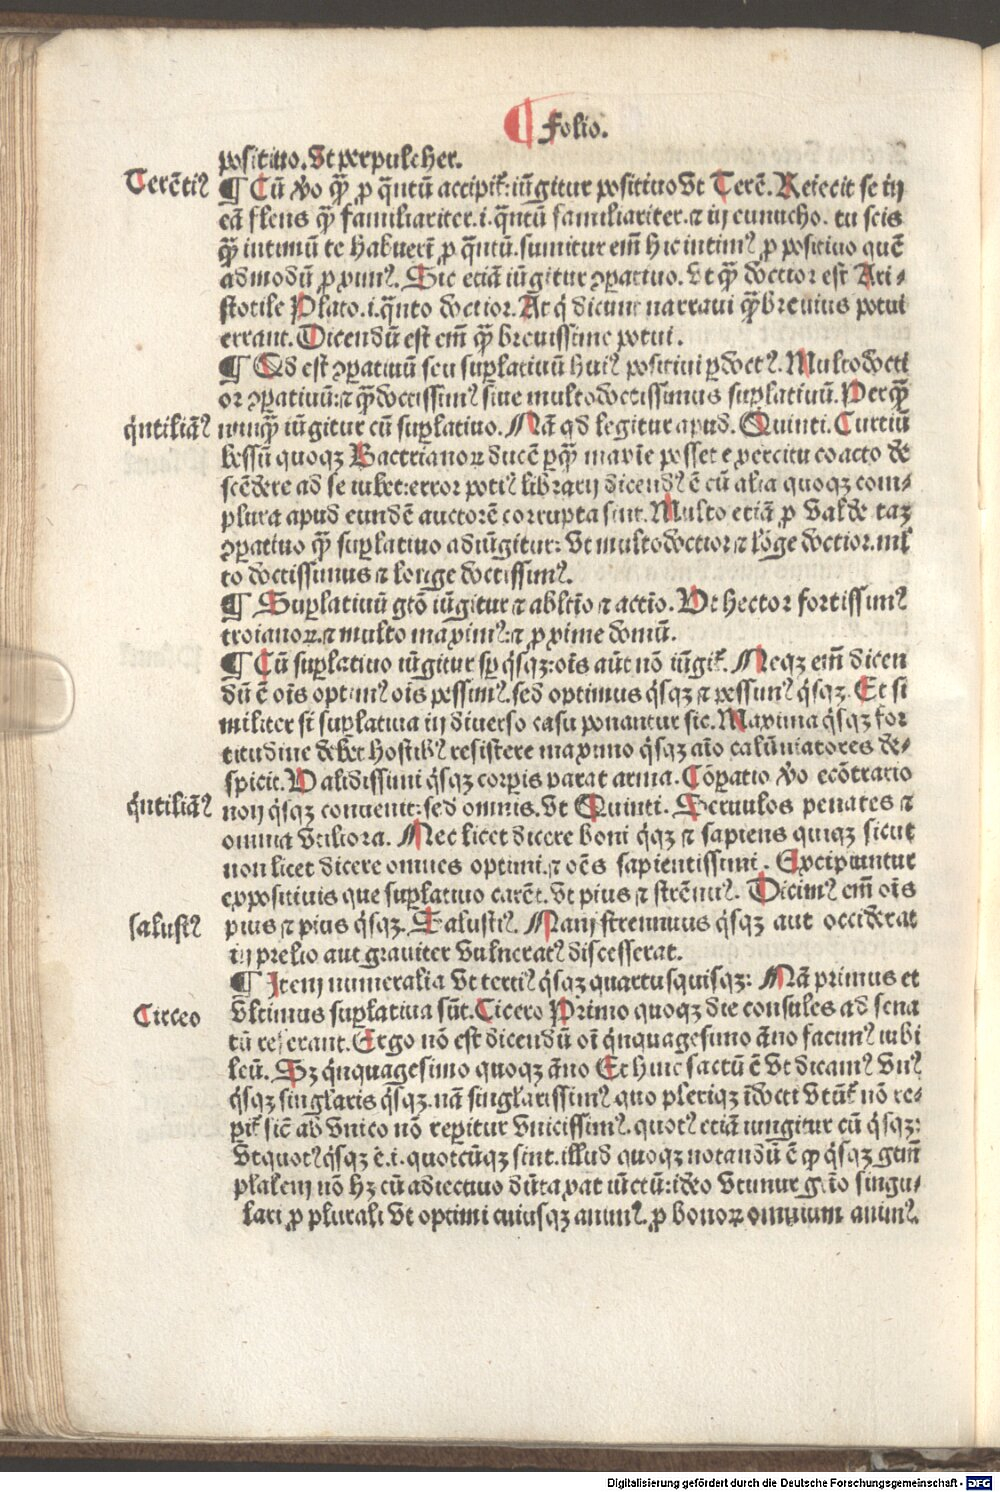 ¶ Folio.
positiuo. Ut perpulcher.
Terētiꝰ
¶ Cū ꝟo qꝫ̄ ꝓ q̄ntū accipit᷑: iūgitur positiuo Ut Terē. Reiecit se in
eā flens qꝫ̄ familiariter .i. q̄ntū familiariter. ⁊ in eunucho. tu scis
qꝫ̄ intimū te habuerī ꝓ q̄ntū. sumitur em̄ hic intimꝰ ꝓ positiuo quē
admodū ꝓximꝰ. Sic etiā iūgitur ꝯꝑatiuo. Ut qꝫ̄ doctior est Ari-
stotile Plato .i. q̄nto doctior. At q̇ dicunt narraui qꝫ̄ breuius potui
errant. Dicendū est em̄ qꝫ̄ breuissime potui.
¶ Qd est ꝯꝑatiuū seu suꝑlatiuū huiꝰ positiui ꝑdoctꝰ. Multo docti
or ꝯꝑatiuū: ⁊ qꝫ̄ doctissimꝰ siue multo doctissimus suꝑlatiuū. Perqꝫ̄
q̇ntiliāꝰ
nunqꝫ̄ iūgitur cū suꝑlatiuo. Nā qd legitur apud. Quinti. Curtiū
bessū quoqꝫ Bactrianoꝝ ducē ꝑqꝫ̄ maxīe posset exercitu coacto de
scēdere ad se iubet: error potiꝰ librarij dicendꝰ ē cū alia quoqꝫ com-
plura apud eundē auctorē corrupta sint. Multo etiā ꝓ valde taꝫ
ꝯꝑatiuo qꝫ̄ suꝑlatiuo adiūgitur: Ut multo doctior ⁊ lōge doctior. ml
to doctissimus ⁊ longe doctissimꝰ.
¶ Suꝑlatiuū gtō iūgitur ⁊ abltīo ⁊ actīo. Ut hector fortissimꝰ
troianoꝝ. ⁊ multo maximꝰ: ⁊ ꝓxime domū.
¶ Cū suꝑlatiuo iūgitur sꝑ q̇sqꝫ: oīs aūt nō iūgit᷑. Neqꝫ em̄ dicen
dū ē oīs optimꝰ oīs pessimꝰ. sed optimus q̇sqꝫ ⁊ pessimꝰ q̇sqꝫ. Et si
militer si suꝑlatiua in diuerso casu ponantur sic. Maxima q̇sqꝫ for
titudine debet hostibꝰ resistere maximo q̇sqꝫ aīo calūniatores de-
spicit. Validissimi q̇sqꝫ corꝑis parat arma. Cōꝑatio ꝟo ecōtrario
q̇ntiliāꝰ
non q̇sqꝫ conuenit: sed omnis. Ut Quinti. Seruulos penates ⁊
omnia vtiliora. Nec licet dicere boni q̇qꝫ ⁊ sapiens quiqꝫ sicut
non licet dicere omnes optimi. ⁊ oēs sapientissimi. Excipiuntur
expositiuis que suꝑlatiuo carēt. Ut pius ⁊ strēnuꝰ. Dicimꝰ em̄ oīs
salustꝰ
pius ⁊ pius q̇sqꝫ. Salustiꝰ. Nam strennuus q̇sqꝫ aut occiderat
in prelio aut grauiter vulneratꝰ discesserat.
¶ Item numeralia Ut tertiꝰ q̇sqꝫ quartusquisqꝫ: Nā primus et
Cicceo
vltimus suꝑlatiua sūt. Cicero Primo quoqꝫ die consules ad sena
tū referant. Ergo nō est dicendū oī q̇nquagesimo āno facimꝰ iubi
leū. Sꝫ q̇nquagesimo quoqꝫ āno Et hinc factū ē Ut dicamꝰ vnꝰ
q̇sqꝫ singlaris q̇sqꝫ. nā singlarissimꝰ quo pleriqꝫ īdocti vtūt᷑ nō re-
ꝑit᷑ sic̄ ab vnico nō reꝑitur vnicissimꝰ. quotꝰ etiā iungitur cū q̇sqꝫ:
Ut quotꝰ q̇sqꝫ ē .i. quotcūqꝫ sint. illud quoqꝫ notandū ē ꝙ q̇sqꝫ gtm̄
plalem nō hꝫ cū adiectiuo dūtaxat iūctū: ideo vtunur gtīo singu-
lari ꝓ plurali Ut optimi cuiusqꝫ animꝰ. ꝓ bonoꝝ omnium animꝰ.
Digitalisierung gefördert durch die Deutsche Forschungsgemeinschaft - DFG